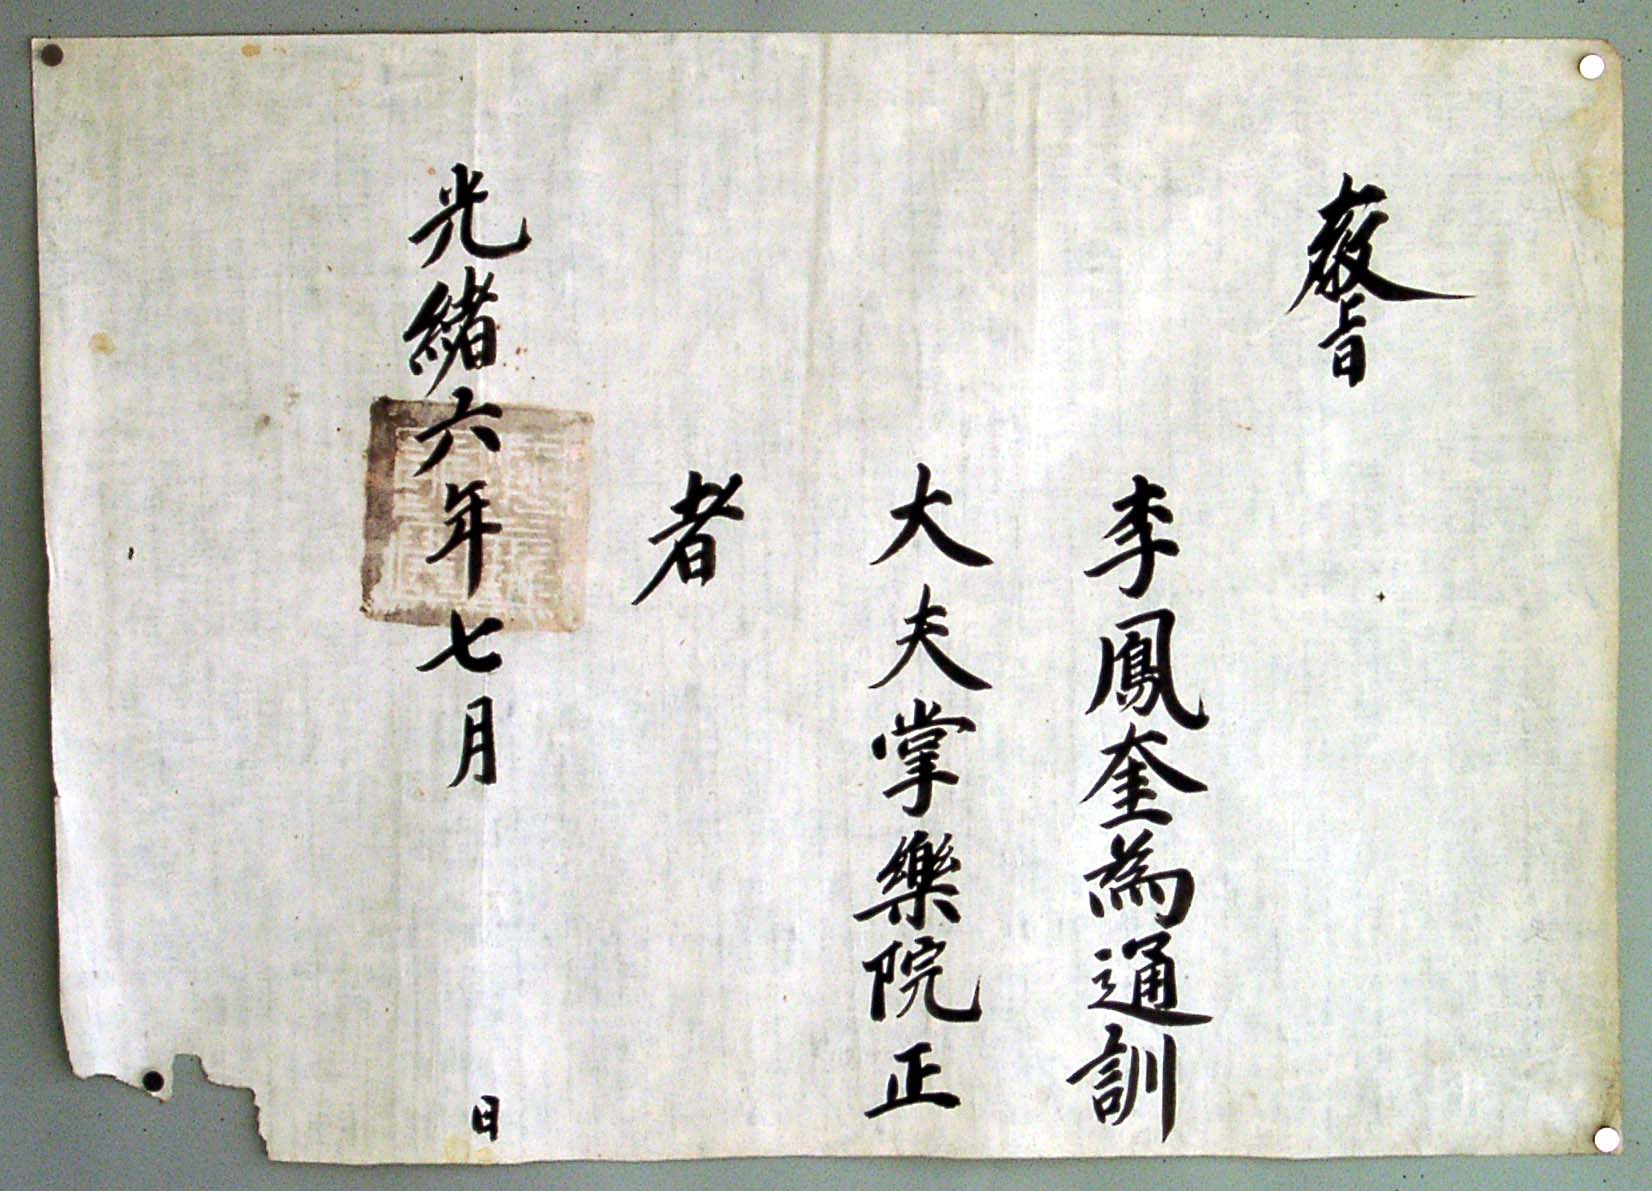 教旨
李鳳奎為通訓
大夫掌樂院正
者
光緒六年七月 日